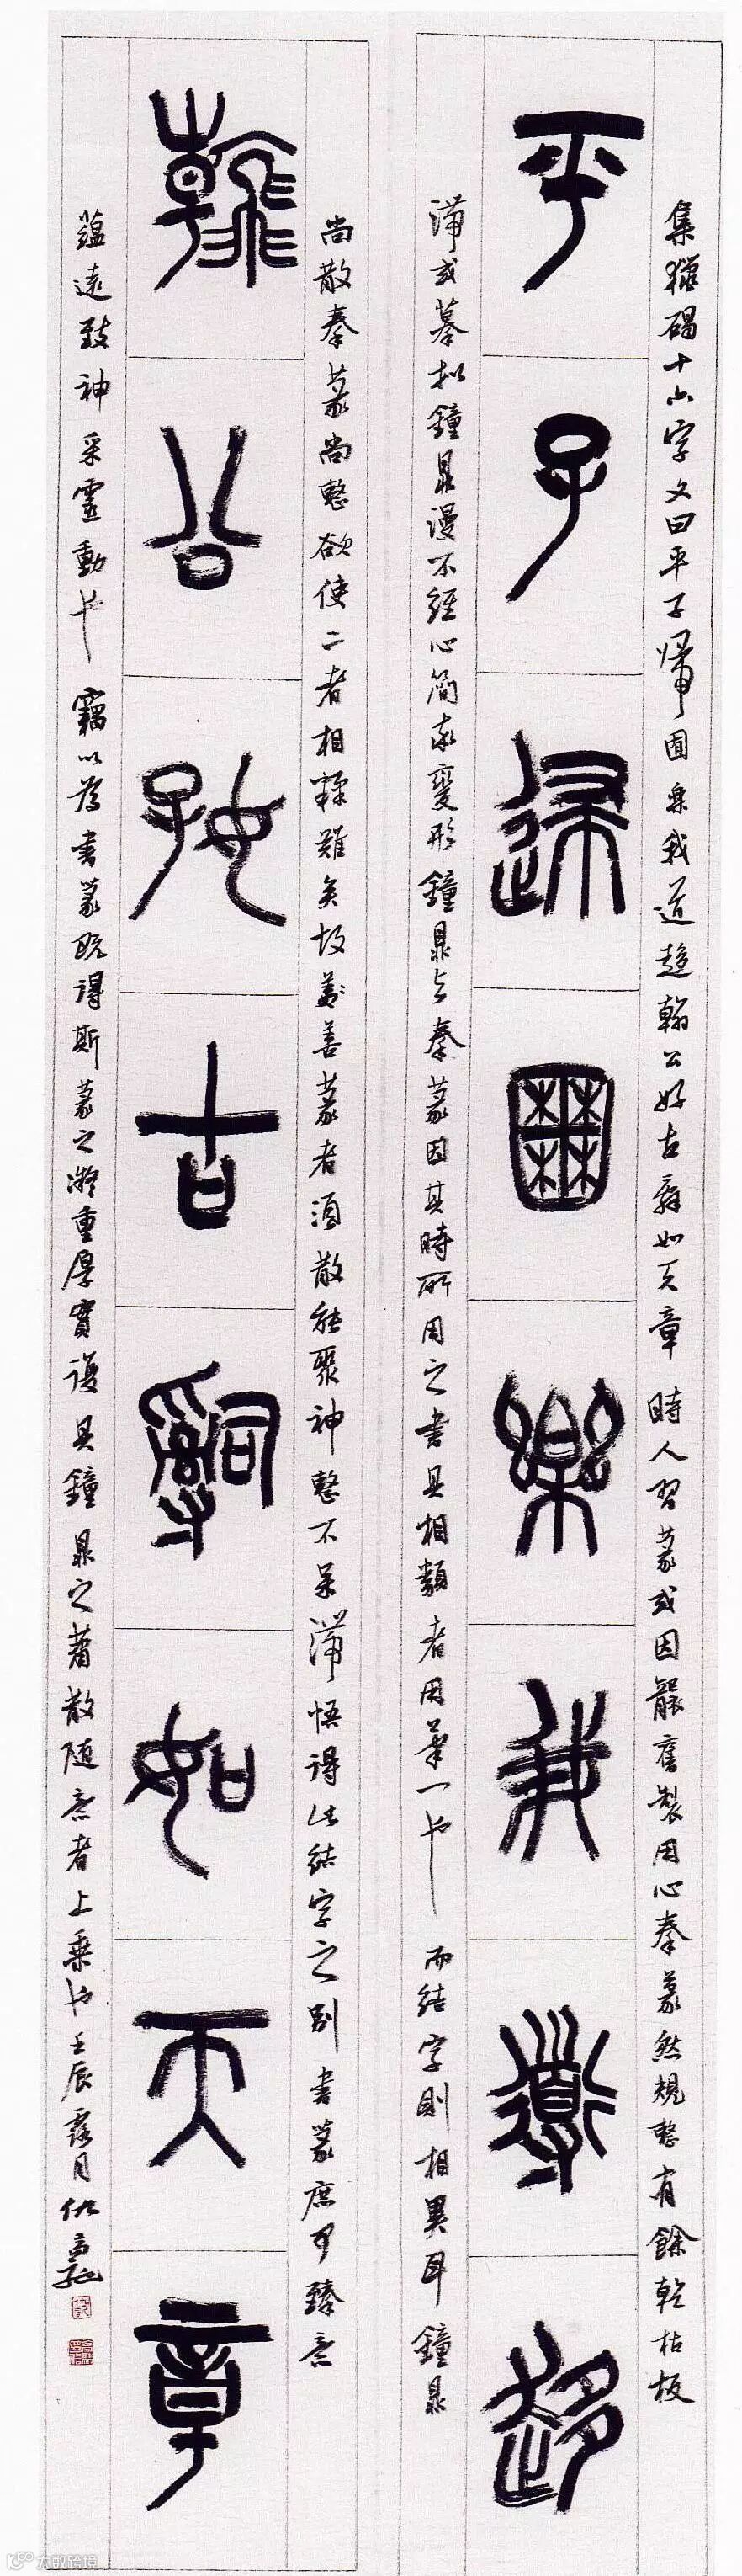 集獵碣十六字文曰平子帰囿樂我道趍翰公好古辭如天章 時人習篆或因襲舊製用心秦篆然規整有餘乾枯板
平子歸囿樂我道趍
滞或摹拟鐘鼎漫不經心簡求變形鐘鼎与秦篆因其時所用之書具相類者用筆一也 而結字則相異耳鐘鼎
尚散秦篆尚整欲使二者相糅難矣故善篆者須散能聚神整不呆滞悟得此結字之别書篆庶可臻意
翰公好古辭如天章
蕴遠致神采靈動也 竊以為書篆既得斯篆之凝重厚實複具鐘鼎之蕭散随意者上乘也壬辰 月仇高驰
大数跨境